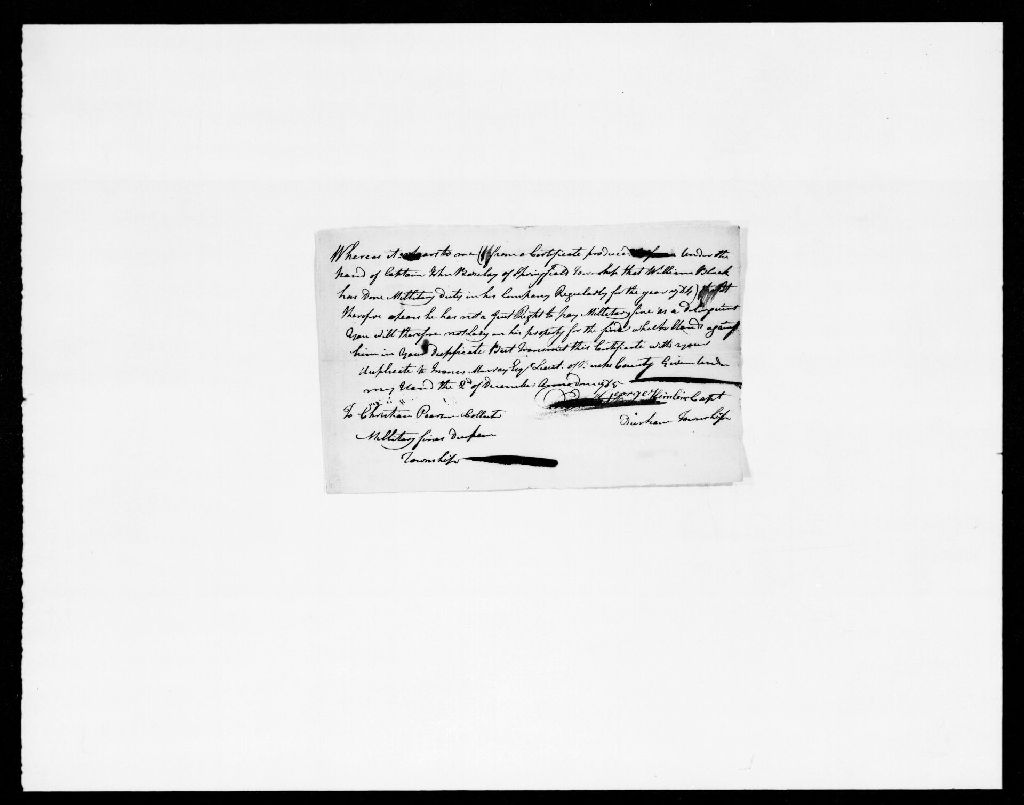 Whereas it apears to me from a Certificate produced under the
hand of Captain John Barclay of Springfield Township that William Black
has Done Millitary duty in his Company Regularly for the year 1784
therefore apears he has not a Just Right to pay Millitary fine as a Delinquent
You will therefore not Levy on his property for the fine which Stands against
him in Your Dupplicate But Transmit this Certificate with your
duplicate to Francis Murray Esqr Lieut. of Bucks County Given under
my Hand the 2d of December Anno Dom 1785
George Heinlein Capt
Durham Township
To Christian Pearson Collect
Millitary fines Durham
Township